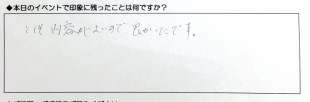 ◆本日のイベントで印象に残ったことは何ですか?
内容がよいので良かったです。